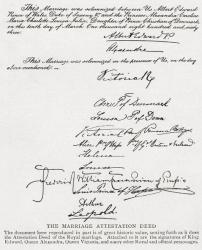 This Marriage was solemnized between Us Albert Edward
Prince of Wales, Duke of Saxony & and the Princess Alexandra Caroline
Maria Charlotte Louisa Julia, Daughter of Prince Christian of Denmark
on this tenth day of March One thousand eight hundred and sixty
three.
Albert Edward P
Alexandra
This Marriage was solemnized in the presence of Us, on the day
above mentioned.—
Victoria R
Chr. P. of Denmark
Louise Pss Danm
Victoria
Alice
Helena
Louise
Arthur
Leopold
THE MARRIAGE ATTESTATION DEED
The document here reproduced in part is of great historic value, setting forth as it does
the Attestation Deed of the Royal marriage. Attached to it are the signatures of King
Edward, Queen Alexandra, Queen Victoria, and many other Royal and official personages.